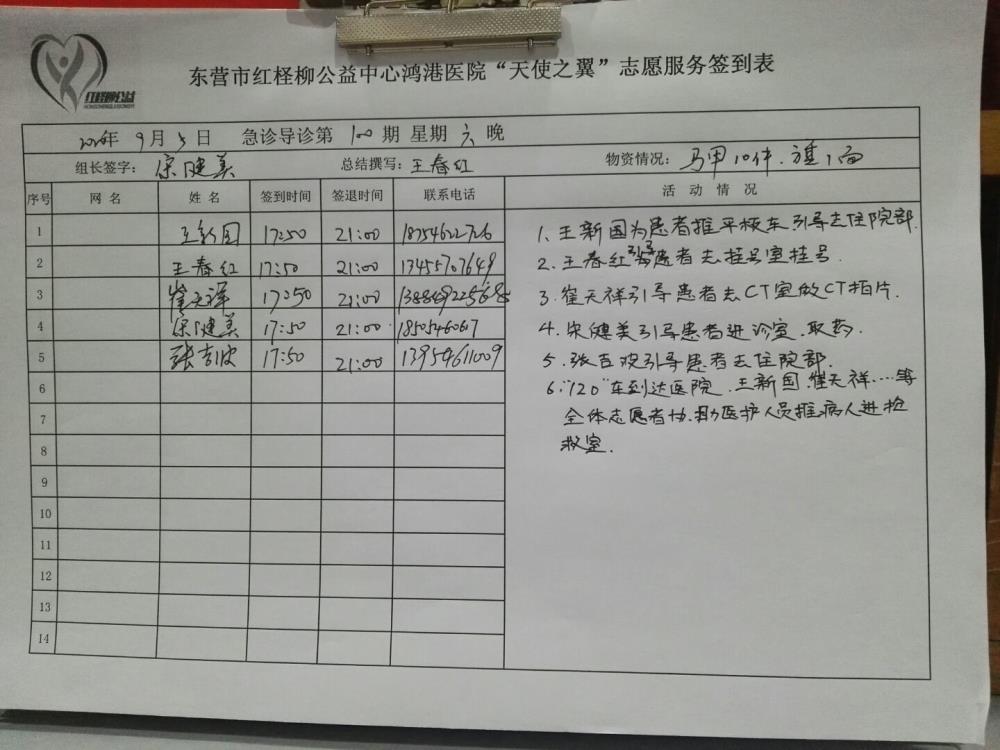 红柽柳公益
东营市红柽柳公益中心鸿港医院“天使之翼”志愿服务签到表
2020年 9月 5日 急诊导诊第 100 期 星期 六 晚
组长签字: 宋健美 总结撰写: 王春红 物资情况: 马甲10件、旗1面
序号 网 名 姓 名 签到时间 签退时间 联系电话 活 动 情 况
1 王新国 17:50 21:00 18754622726
2 王春红 17:50 21:00 13455707649
3 崔天祥 17:50 21:00
4 宋健美 17:50 21:00 18505460617
5 17:50 21:00 13954611009
6
7
8
9
10
11
12
13
14
1、王新国为患者推平板车引导去住院部.
2、王春红引导患者去挂号室挂号.
3、崔天祥引导患者去CT室做CT拍片.
4、宋健美引导患者进诊室、取药.
5、引导患者去住院部.
6、“120”车到达医院、王新国、崔天祥....等
全体志愿者协助医护人员推病人进抢
救室.